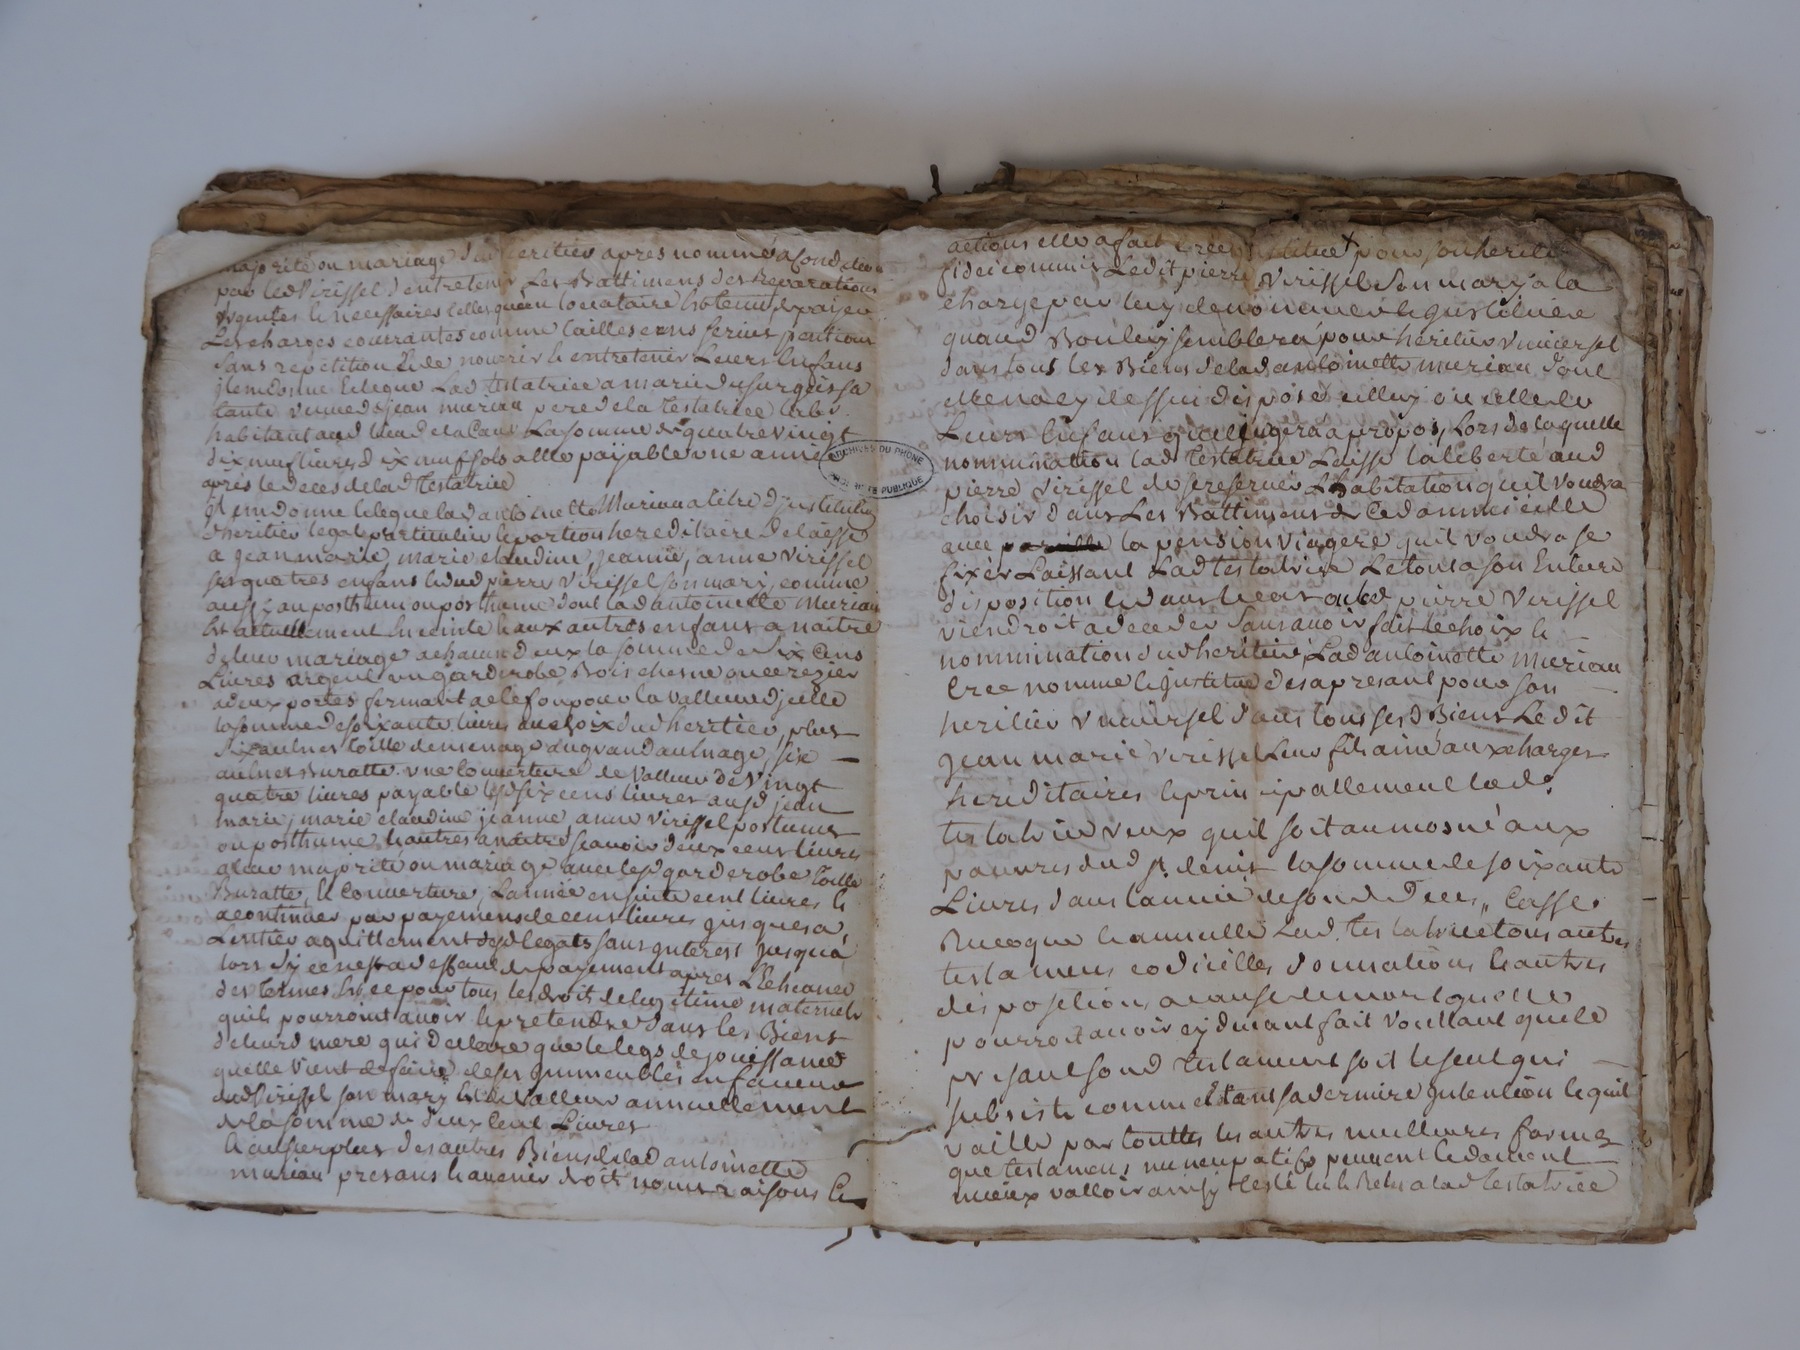 majorité ou mariage dud heritier apres nommé a condition
par led Virissel d'entretenir Les Battimens des Reparations
urgentes & necessaires telles quun locataire est tenu de payer
Les charges courantes comme tailles cens servis pentions
sans repetition & de nourrir & entretenir Leurs Enfans
jtem donne & legue Lad Testatrice a marie
tante veuve de jean muriau pere de la Testatrice
habitant aud lieu La somme de quatre vingt
dix neuf livres dix neuf sols a elle payable une année
après le deces de lad Testatrice
Jtem donne & legue lad antoinette Muriau a titre d'jnstitution
d'heritier legat particulier & portion hereditaire delaisse
a jean marie, marie claudine, jeanne, anne Virissel
ses quatres enfans & dud pierre Virissel son mari, comme
aussy au posthume ou posthume dont lad antoinette Muriau
Est actuellement Enceinte & aux autres enfans a naitre
de leur mariage a chacun d'eux la somme de Six Cens
Livres argent un garderobe Bois chesne ou cerezier
a deux portes fermant a clef ou pour la valleur d'jcelle
la somme de soixante livres au choix dud heritier, plus
Six aulnes toille de menage du grand aulnage, six
aulnes Buratte une Couverture de valleur de Vingt
quatre livres payable lesd six cens livres ausd jean
marie, marie claudine jeanne anne Virissel postumes
ou posthume & autres a naitre scavoir deux cens livres
a leur majorité ou mariage avec lesd garderobe toille
Buratte, & Couverture, L'année ensuite cent livres &
a continuer par payemens de cens livres jusques a
L'entier aquittement desd legats sans jnterest jusqu'a
lors si ce nest a deffaut de payement apres L'Echeance
des termes & ce pour tous les droits de legitime maternels
quils pourroint avoir & pretendre dans les Biens
de leurd mere qui declare que le legs de jouissance
quelle vient de faire de ses jmmeubles en faveur
dud Virissel son mary Est de valleur annuellement
de la somme de Deux Cent Livres
Et au surplus des autres Biens de lad antoinette
muriau presans & avenir droits noms raisons &
actions elle a fait créé & institué pour son heritier
fideicommis Ledit pierre Virissel Son mary a la
charge par luy de nommer & qu'
quand Bon luy semblera pour heritier universel
dans tous les Biens de lad antoinette muriau dont
elle na cy dessus disposé celluy ou celle de
Leurs Enfans qu'il jugera a propos, Lors de laquelle
nommination lad Testatrice Laisse la liberté aud
pierre Virissel de se reserver L'habitation quil voudra
choisir dans Les Battimens de
avec la pension viagere quil voudra se
fixer Laissant Lad testatrice Le tout a son Entiere
disposition & dans le cas ou led pierre Virissel
viendroit a deceder sans avoir fait le choix &
nommination dud heritier, Lad antoinette Muriau
Cree nomme & Jnstitue des apresant pour son
heritier universel dans tous sesd Biens Ledit
jean marie Virissel Leur fils ainé aux charges
hereditaires & principallement lad.
testatrice veux quil soit aumosné aux
pauvres dud St denis la somme de soixante
Livres dans l'année de son Deces,, Casse
Revoque & annulle Lad. testatrice tous autres
testamens codicilles donnations & autres
disposition a cause de mort quelle
pourroit avoir cy devant fait voullant que le
present sond testament soit le seul qui
subsiste comme Etant sa derniere jntention & quil
vaille par touttes les autres meilleures formes
que testamens nuncupatifs peuvent & doivent
mieux valloir ainsy testé lu & Relu a lad testatrice
ARCHIVES DU RHONE